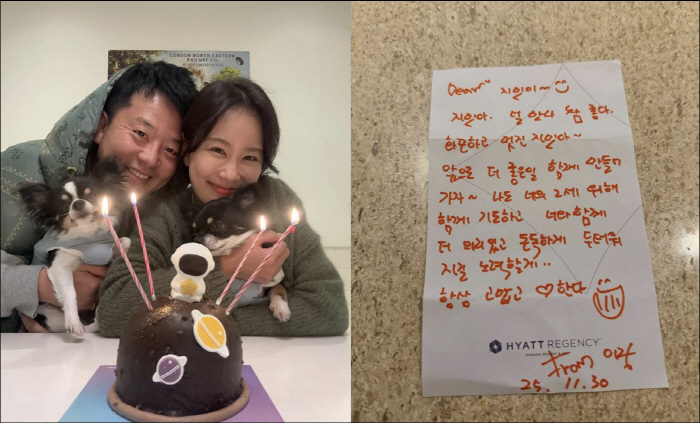 LONDON NORTH EASTERN
RAILWAY CO.
Dear" 지인이~
지인아. 널 만나 참 좋다.
하루하고 멋진 지인아~
앞으로 더 좋은일 함께 만들어
가자~ 나도 너의 2세 위해
함께 기도하고 너와 함께
더 의리있고 돈독하게 두터워
지길 노력할게..
항상 고맙고 ♡한다
HYATT REGENCY
From
25. 11. 30